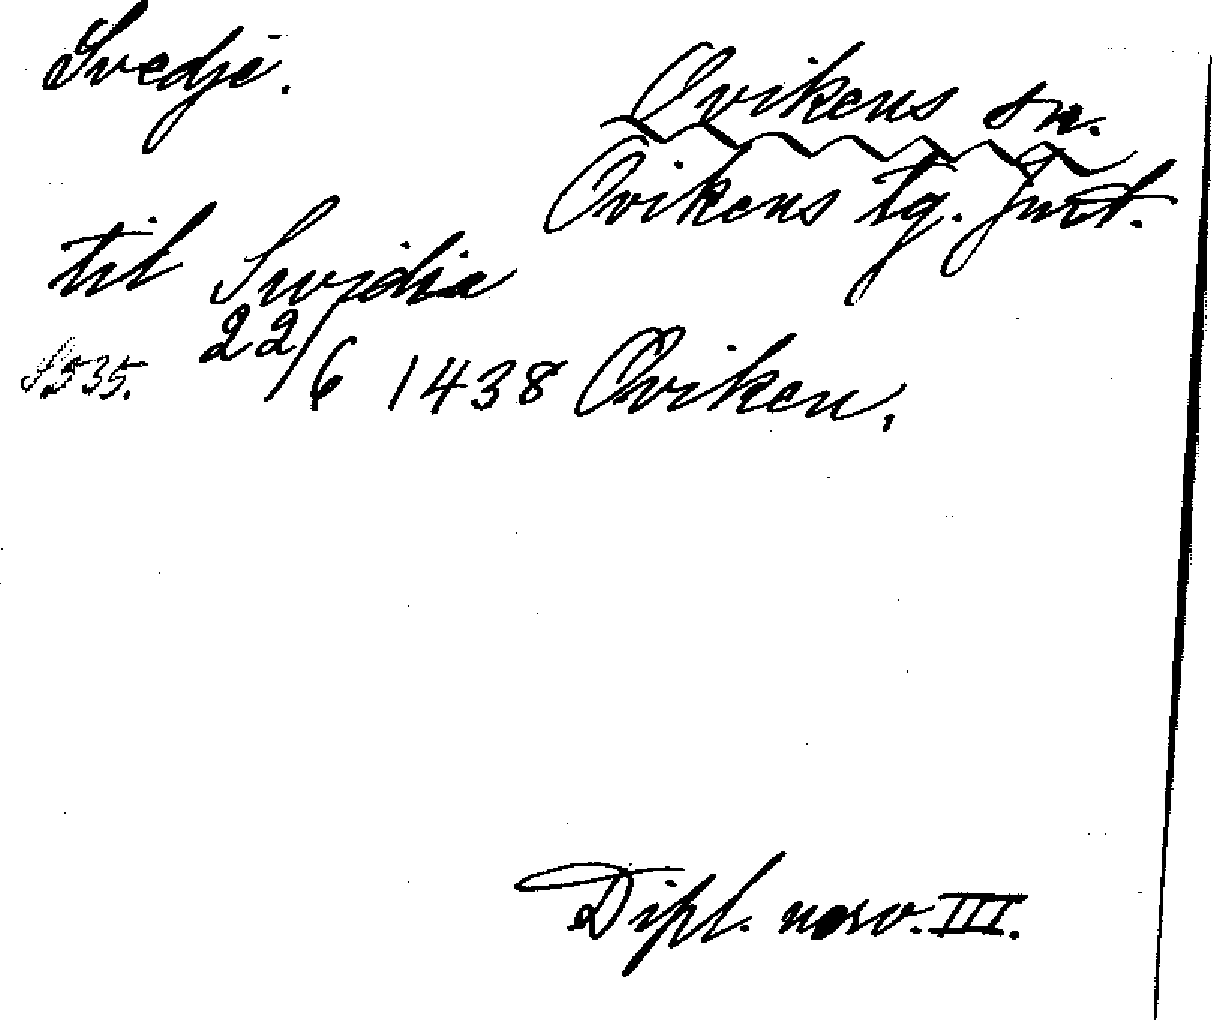 Svedje.
Ovikens sn.
Ovikens tg. Jmtl.
til Swidia
S 535. 22/6 1438 Oviken.
Dipl. norv. III.